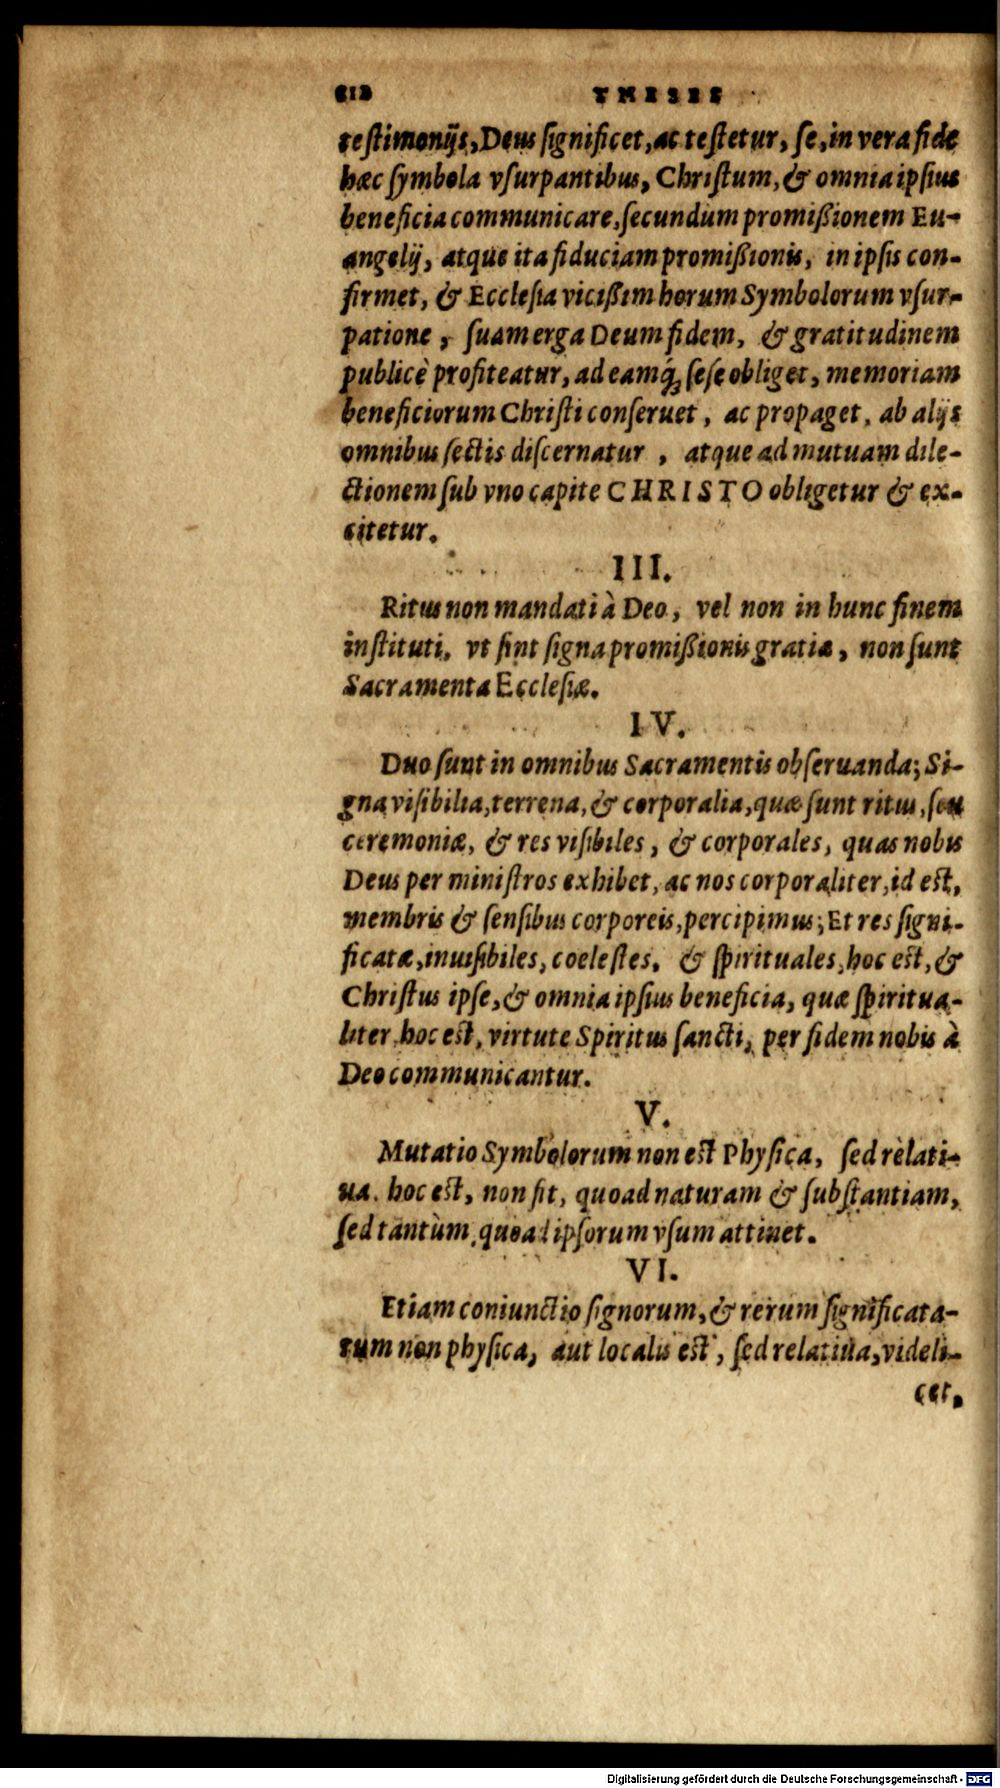 612 THESES
testimonijs, Deus significet, ac testetur, se, in vera fide
hæc symbola vsurpantibus, Christum, & omnia ipsius
beneficia communicare, secundum promißionem Eu-
angelij, atque ita fiduciam promißionis, in ipsis con-
firmet, & Ecclesia vicißim horum Symbolorum vsur-
patione, suam erga Deum fidem, & gratitudinem
publicè profiteatur, ad eamq́; sese obliget, memoriam
beneficiorum Christi conseruet, ac propaget, ab alijs
omnibus sectis discernatur, atque ad mutuam dile-
ctionem sub vno capite CHRISTO obligetur & ex-
citetur.
III.
Ritus non mandati à Deo, vel non in hunc finem
instituti, vt sint signa promißionis gratiæ, non sunt
Sacramenta Ecclesiæ.
IV.
Duo sunt in omnibus Sacramentis obseruanda; Si-
gna visibilia, terrena, & corporalia, quæ sunt ritus, seu
ceremoniæ, & res visibiles, & corporales, quas nobis
Deus per ministros exhibet, ac nos corporaliter, id est,
membris & sensibus corporeis, percipimus; Et res signi-
ficatæ, inuisibiles, coelestes, & spirituales, hoc est, &
Christus ipse, & omnia ipsius beneficia, quæ spiritua-
liter, hoc est, virtute Spiritus sancti, per fidem nobis à
Deo communicantur.
V.
Mutatio Symbolorum non est Physica, sed relati-
ua, hoc est, non fit, quoad naturam & substantiam,
sed tantùm, quoad ipsorum vsum attinet.
VI.
Etiam coniunctio signorum, & rerum significata-
rum non physica, aut localis est, sed relatiua, videli-
cet,
Digitalisierung gefördert durch die Deutsche Forschungsgemeinschaft - DFG